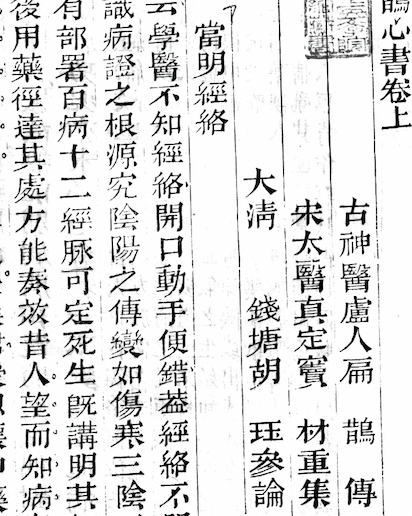 鵲心書卷上
古神醫盧人扁 鵲 傳
宋太醫真定竇 材重集
大淸 錢塘胡 珏參論
當明經絡
云學醫不知經絡開口動手便錯葢經絡不
識病證之根源究陰陽之傳變如傷寒三陰
有部署百病十二經脉可定死生旣講明其
後用藥徑達其處方能奏效昔人望而知病